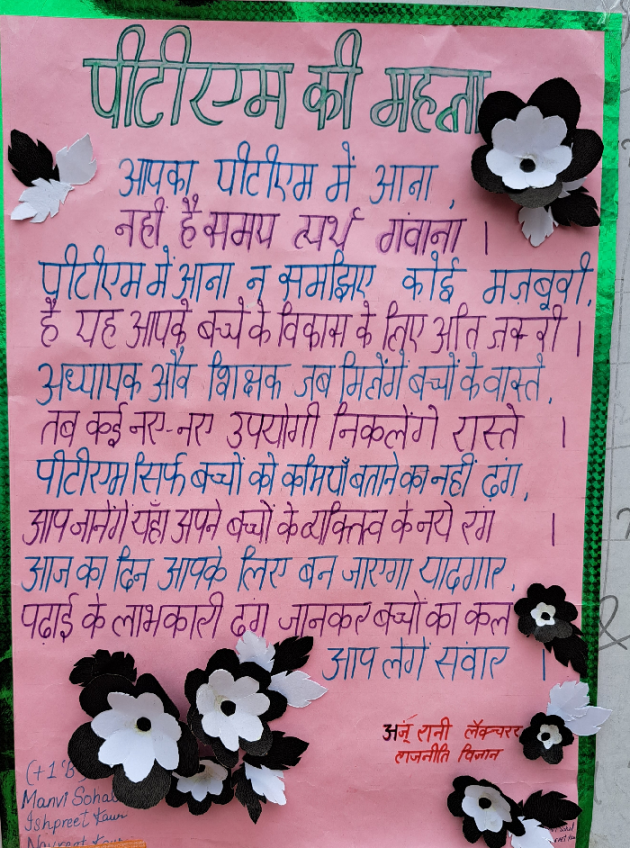 पीटीएम की महत्ता
आपका पीटीएम में आना,
नहीं है समय व्यर्थ गंवाना ।
पीटीएम में आना न समझिए कोई मजबूरी,
है यह आपके बच्चे के विकास के लिए अति जरूरी ।
अध्यापक और शिक्षक जब मिलेंगे बच्चों के वास्ते,
तब कई नए-नए उपयोगी निकलेंगे रास्ते ।
पीटीएम सिर्फ बच्चों की कमियाँ बताने का नहीं ढंग,
आप जानेंगे यहाँ अपने बच्चों के व्यक्तित्व के नये रंग ।
आज का दिन आपके लिए बन जाएगा यादगार,
पढ़ाई के लाभकारी ढंग जानकर बच्चों का कल
आप लेगें संवार ।
अंजू रानी लैक्चरर
राजनीति विज्ञान
(+1 'B'
Manvi
Ishpreet Kaur